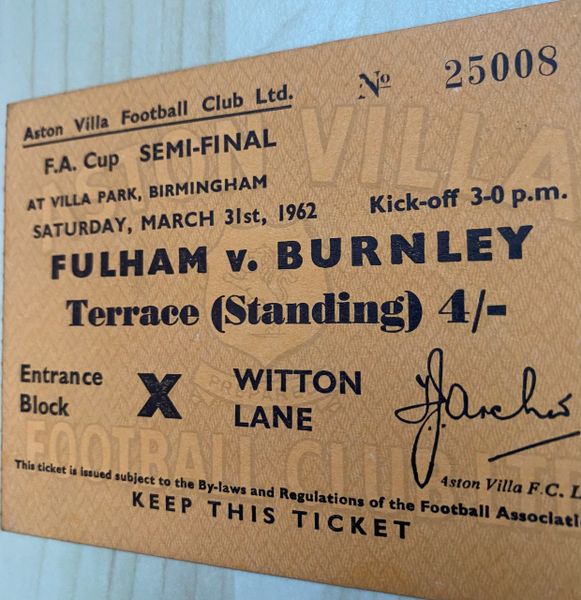 Aston Villa Football Club Ltd. No 25008
F.A. Cup SEMI-FINAL
AT VILLA PARK, BIRMINGHAM
SATURDAY, MARCH 31st, 1962 Kick-off 3-0 p.m.
FULHAM v. BURNLEY
Terrace (Standing) 4/-
Entrance Block X WITTON LANE
F.J. Archer
Aston Villa F.C. L
This ticket is issued subject to the By-laws and Regulations of the Football Associati
KEEP THIS TICKET
ASTON VILLA
PREPARED
FOOTBALL CLUB